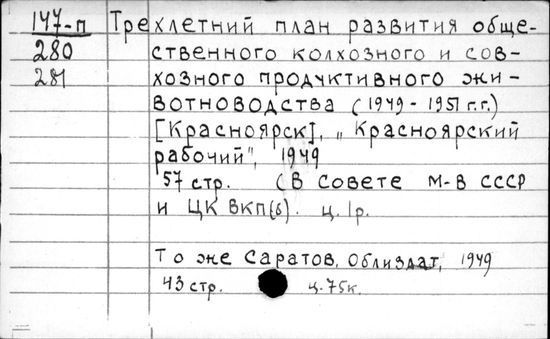 147-п Трехлетний план развития обще-
280 ственного колхозного и сов-
281 хозного продуктивного жи-
вотноводства (1949-1951 г.г.)
[Красноярск], „Красноярский
рабочий", 1949
57 стр. (В Совете М-в СССР
и ЦК ВКП(б). ц. 1р.
То же Саратов, Облиздат, 1949
43 стр. ц. 75к.